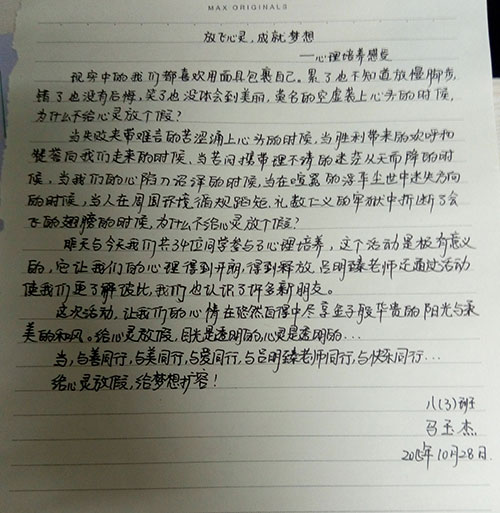 MAX ORIGINALS
放飞心灵,成就梦想
——心理培养感受
现实中的我们都喜欢用面具包裹自己。累了也不知道放慢脚步,
错了也没有后悔,笑了也没体会到美丽,莫名的空虚袭上心头的时候,
为什么不给心灵放个假?
当失败夹带难言的苦涩涌上心头的时候,当胜利带来的欢呼和
赞誉向我们走来的时候、当苦闷携带理不清的迷茫从天而降的时
候,当我们的心陷入沼泽的时候,当在喧嚣的浮华尘世中迷失方向
的时候,当人在周围环境循规蹈矩、礼数仁义的牢狱中折断了会
飞的翅膀的时候,为什么不给心灵放个假?
昨天与今天我们共34位同学参与了心理培养,这个活动是极有意义
的,它让我们的心理得到开朗,得到释放,吕明臻老师还通过活动
使我们更了解彼此,我们也认识了许多新朋友。
这次活动,让我们的心情在悠然自得中尽享金子般华贵的阳光与柔
美的和风。给心灵放假,目光是透明的,心灵是透明的…
当,与善同行,与美同行,与爱同行,与吕明臻老师同行,与快乐同行…
给心灵放假,给梦想扩容!
八(3)班
马玉杰
10月28日